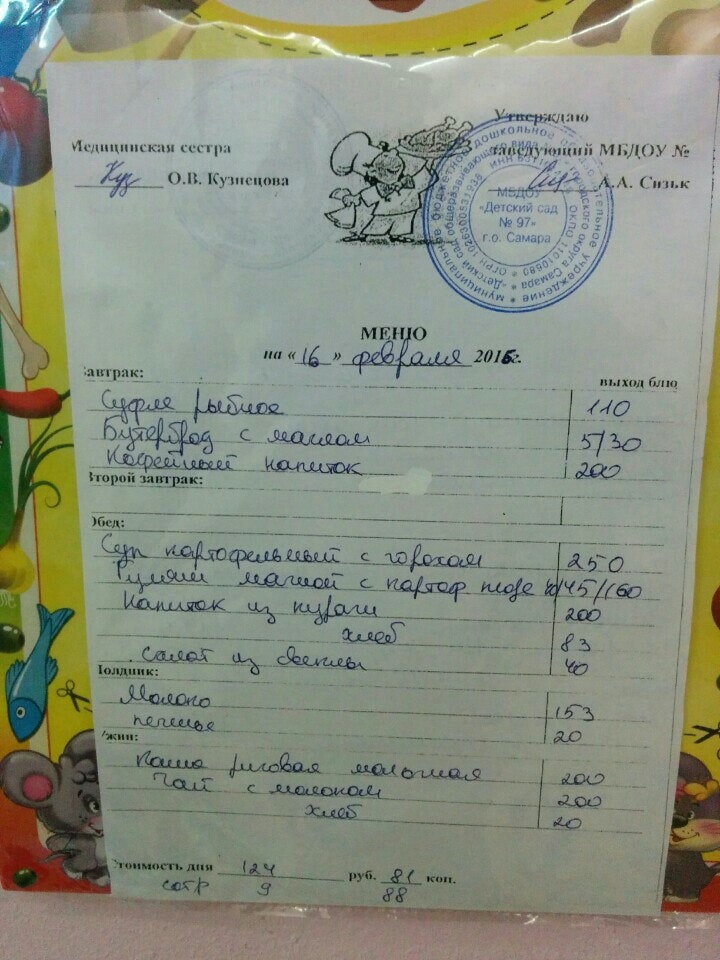 Утверждаю
Медицинская сестра
заведующий МБДОУ №
Куз О.В. Кузнецова
А.А. Сизьк
МБДОУ
«Детский сад
№ 97»
г.о. Самара
МЕНЮ
на « 16 » февраля 2016г.
Завтрак: выход блю
Суфле рыбное 110
Бутерброд с маслом 5/30
Кофейный напиток 200
Второй завтрак:
Обед:
Суп картофельный с горохом 250
Гуляш мясной с картоф пюре 40/45/160
Напиток из кураги 200
хлеб 83
салат из свеклы 40
Полдник:
Молоко 153
печенье 20
Ужин:
Каша рисовая молочная 200
Чай с молоком 200
хлеб 20
Стоимость дня 124 руб. 81 коп.
сотр 9 88